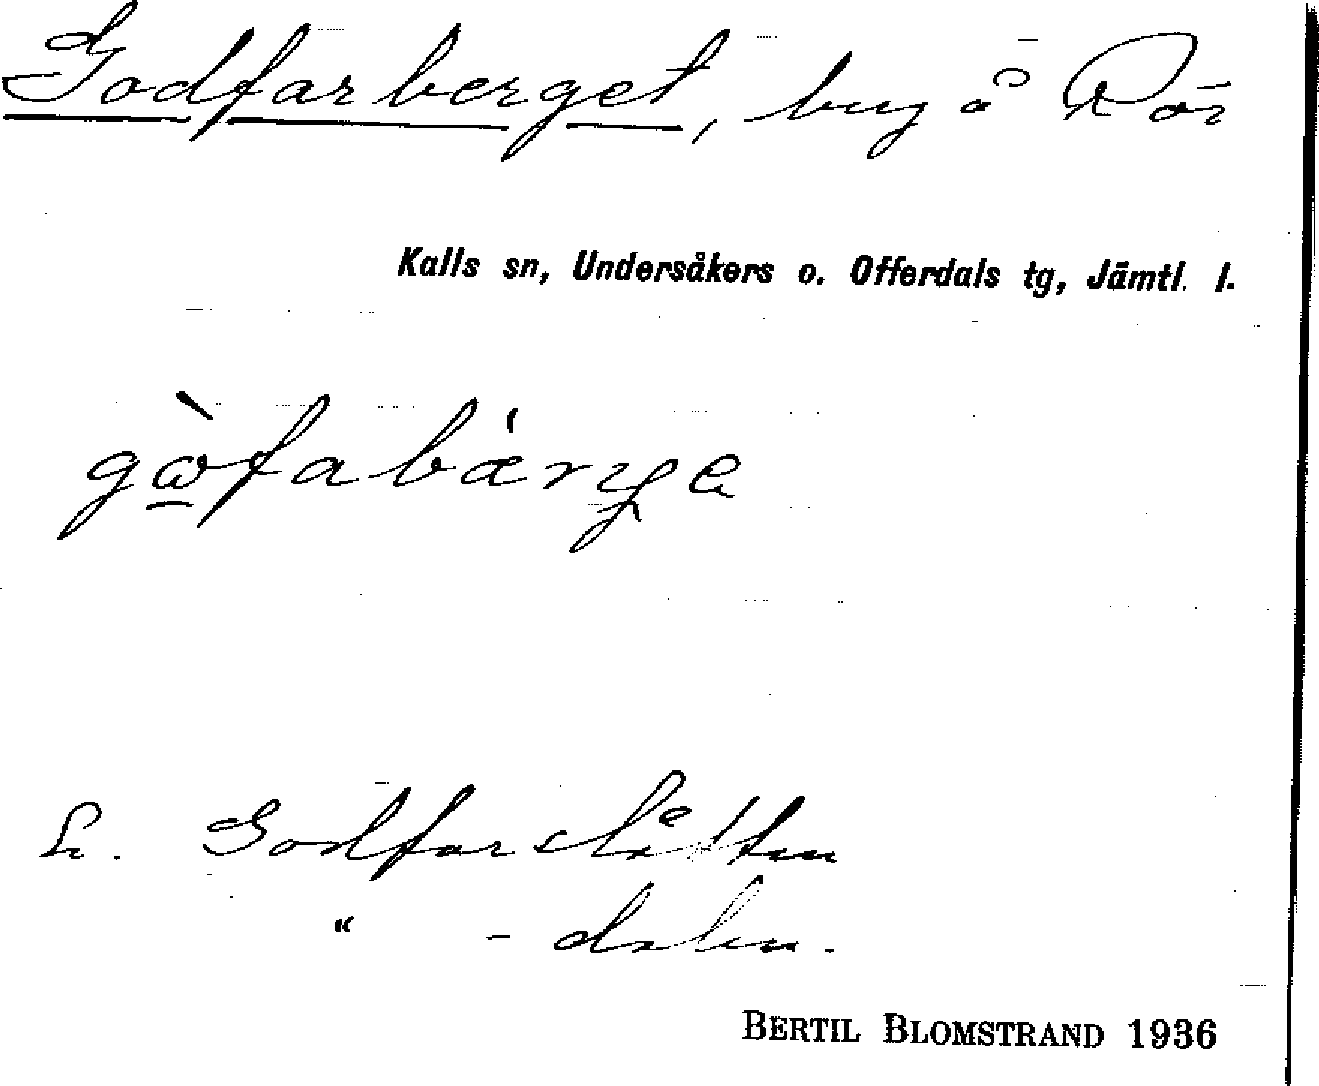 Godfarberget, berg å Rör
Kalls sn, Undersåkers o. Offerdals tg, Jämtl. l.
Godfarslåtten
" - dalen.
BERTIL BLOMSTRAND 1936